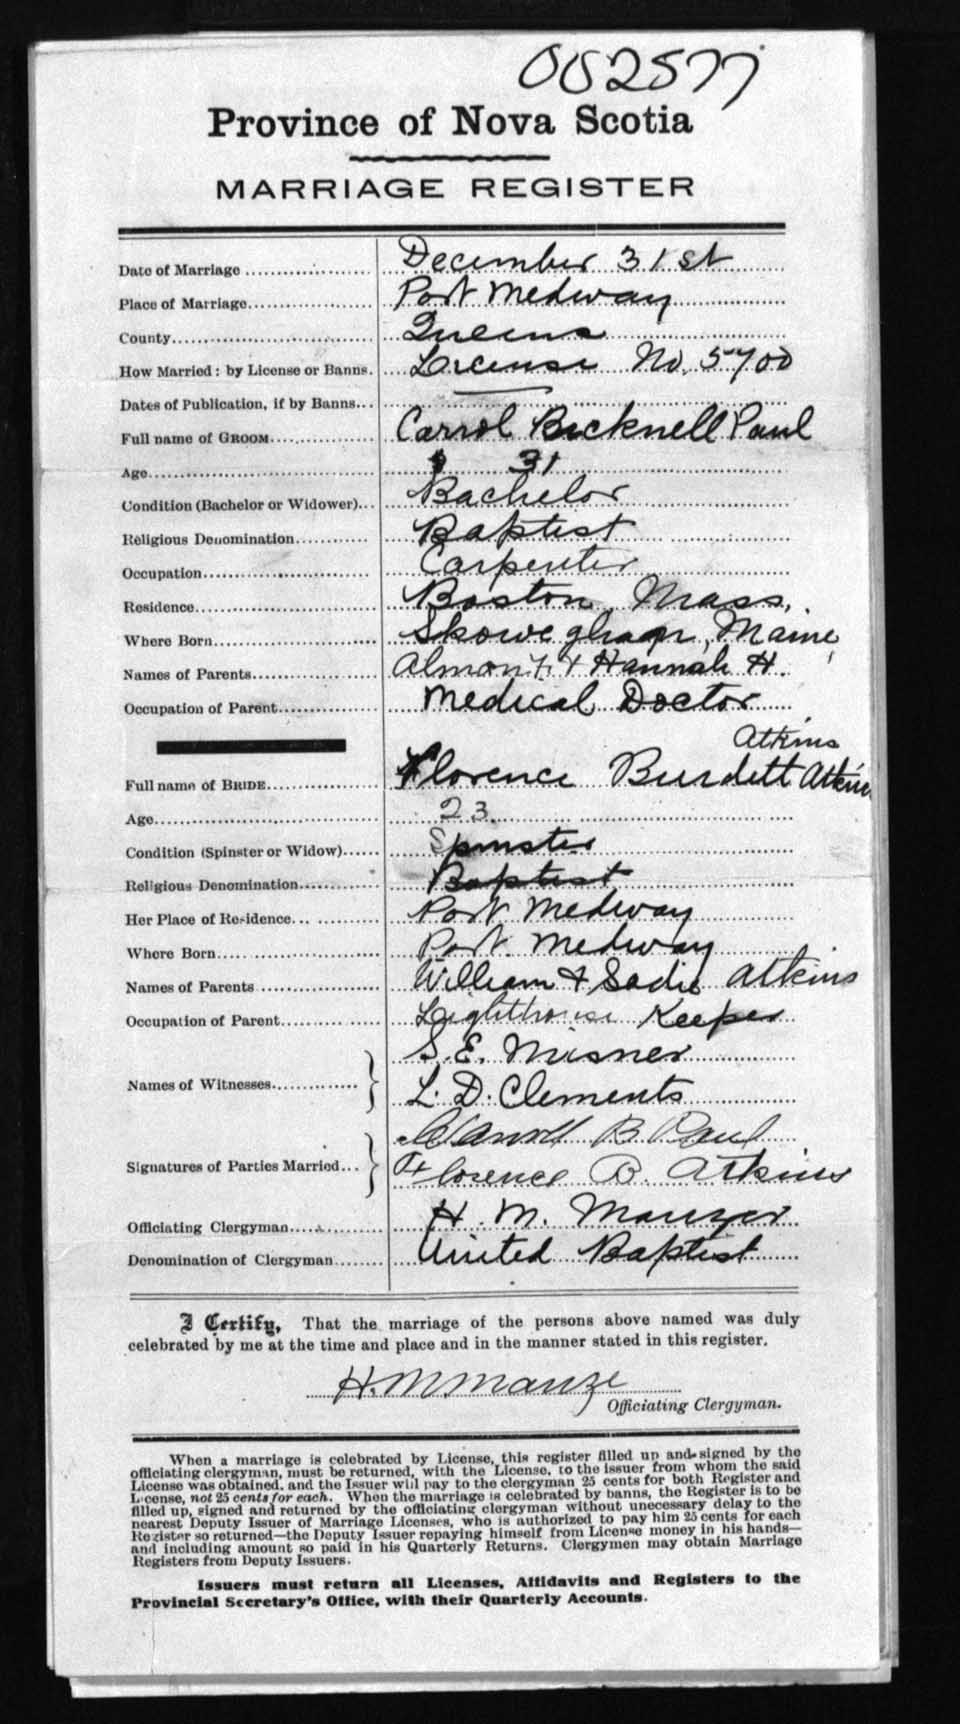 002577
Province of Nova Scotia
MARRIAGE REGISTER
Date of Marriage December 31st
Place of Marriage Port Medway
County Queens
How Married: by License or Banns. License No. 5700
Dates of Publication, if by Banns
Full name of GROOM Carrol Bicknell Paul
Age 31
Condition (Bachelor or Widower) Bachelor
Religious Denomination Baptist
Occupation Carpenter
Residence Boston, Mass.
Where Born Skoweghan, Maine
Names of Parents Almon & Hannah H.
Occupation of Parent Medical Doctor
Atkins
Full name of BRIDE Florence Burdett Atkins
Age 23
Condition (Spinster or Widow) Spinster
Religious Denomination Baptist
Her Place of Residence Port Medway
Where Born Port Medway
Names of Parents William & Sadie Atkins
Occupation of Parent Lighthouse Keeper
S. E. Misner
Names of Witnesses
L. D. Clements
Carroll B. Paul
Signatures of Parties Married
Florence B. Atkins
Officiating Clergyman H. M. Manzer
Denomination of Clergyman United Baptist
I Certify, That the marriage of the persons above named was duly
celebrated by me at the time and place and in the manner stated in this register.
H. M Manze
Officiating Clergyman.
When a marriage is celebrated by License, this register filled up and signed by the
officiating clergyman, must be returned, with the License, to the issuer from whom the said
License was obtained, and the Issuer will pay to the clergyman 25 cents for both Register and
License, not 25 cents for each. When the marriage is celebrated by banns, the Register is to be
filled up, signed and returned by the officiating clergyman without unecessary delay to the
nearest Deputy Issuer of Marriage Licenses, who is authorized to pay him 25 cents for each
Register so returned—the Deputy Issuer repaying himself from License money in his hands—
and including amount so paid in his Quarterly Returns. Clergymen may obtain Marriage
Registers from Deputy Issuers.
Issuers must return all Licenses, Affidavits and Registers to the
Provincial Secretary's Office, with their Quarterly Accounts.